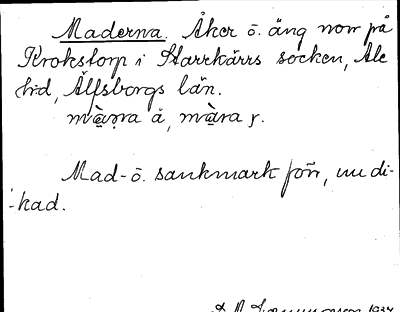 Maderna. Åker o. äng norr på
Krokstorp i Starrkärrs socken, Ale
hd, Älfsborgs län.
Mad- o. sankmark förr, nu di-
kad.
1934